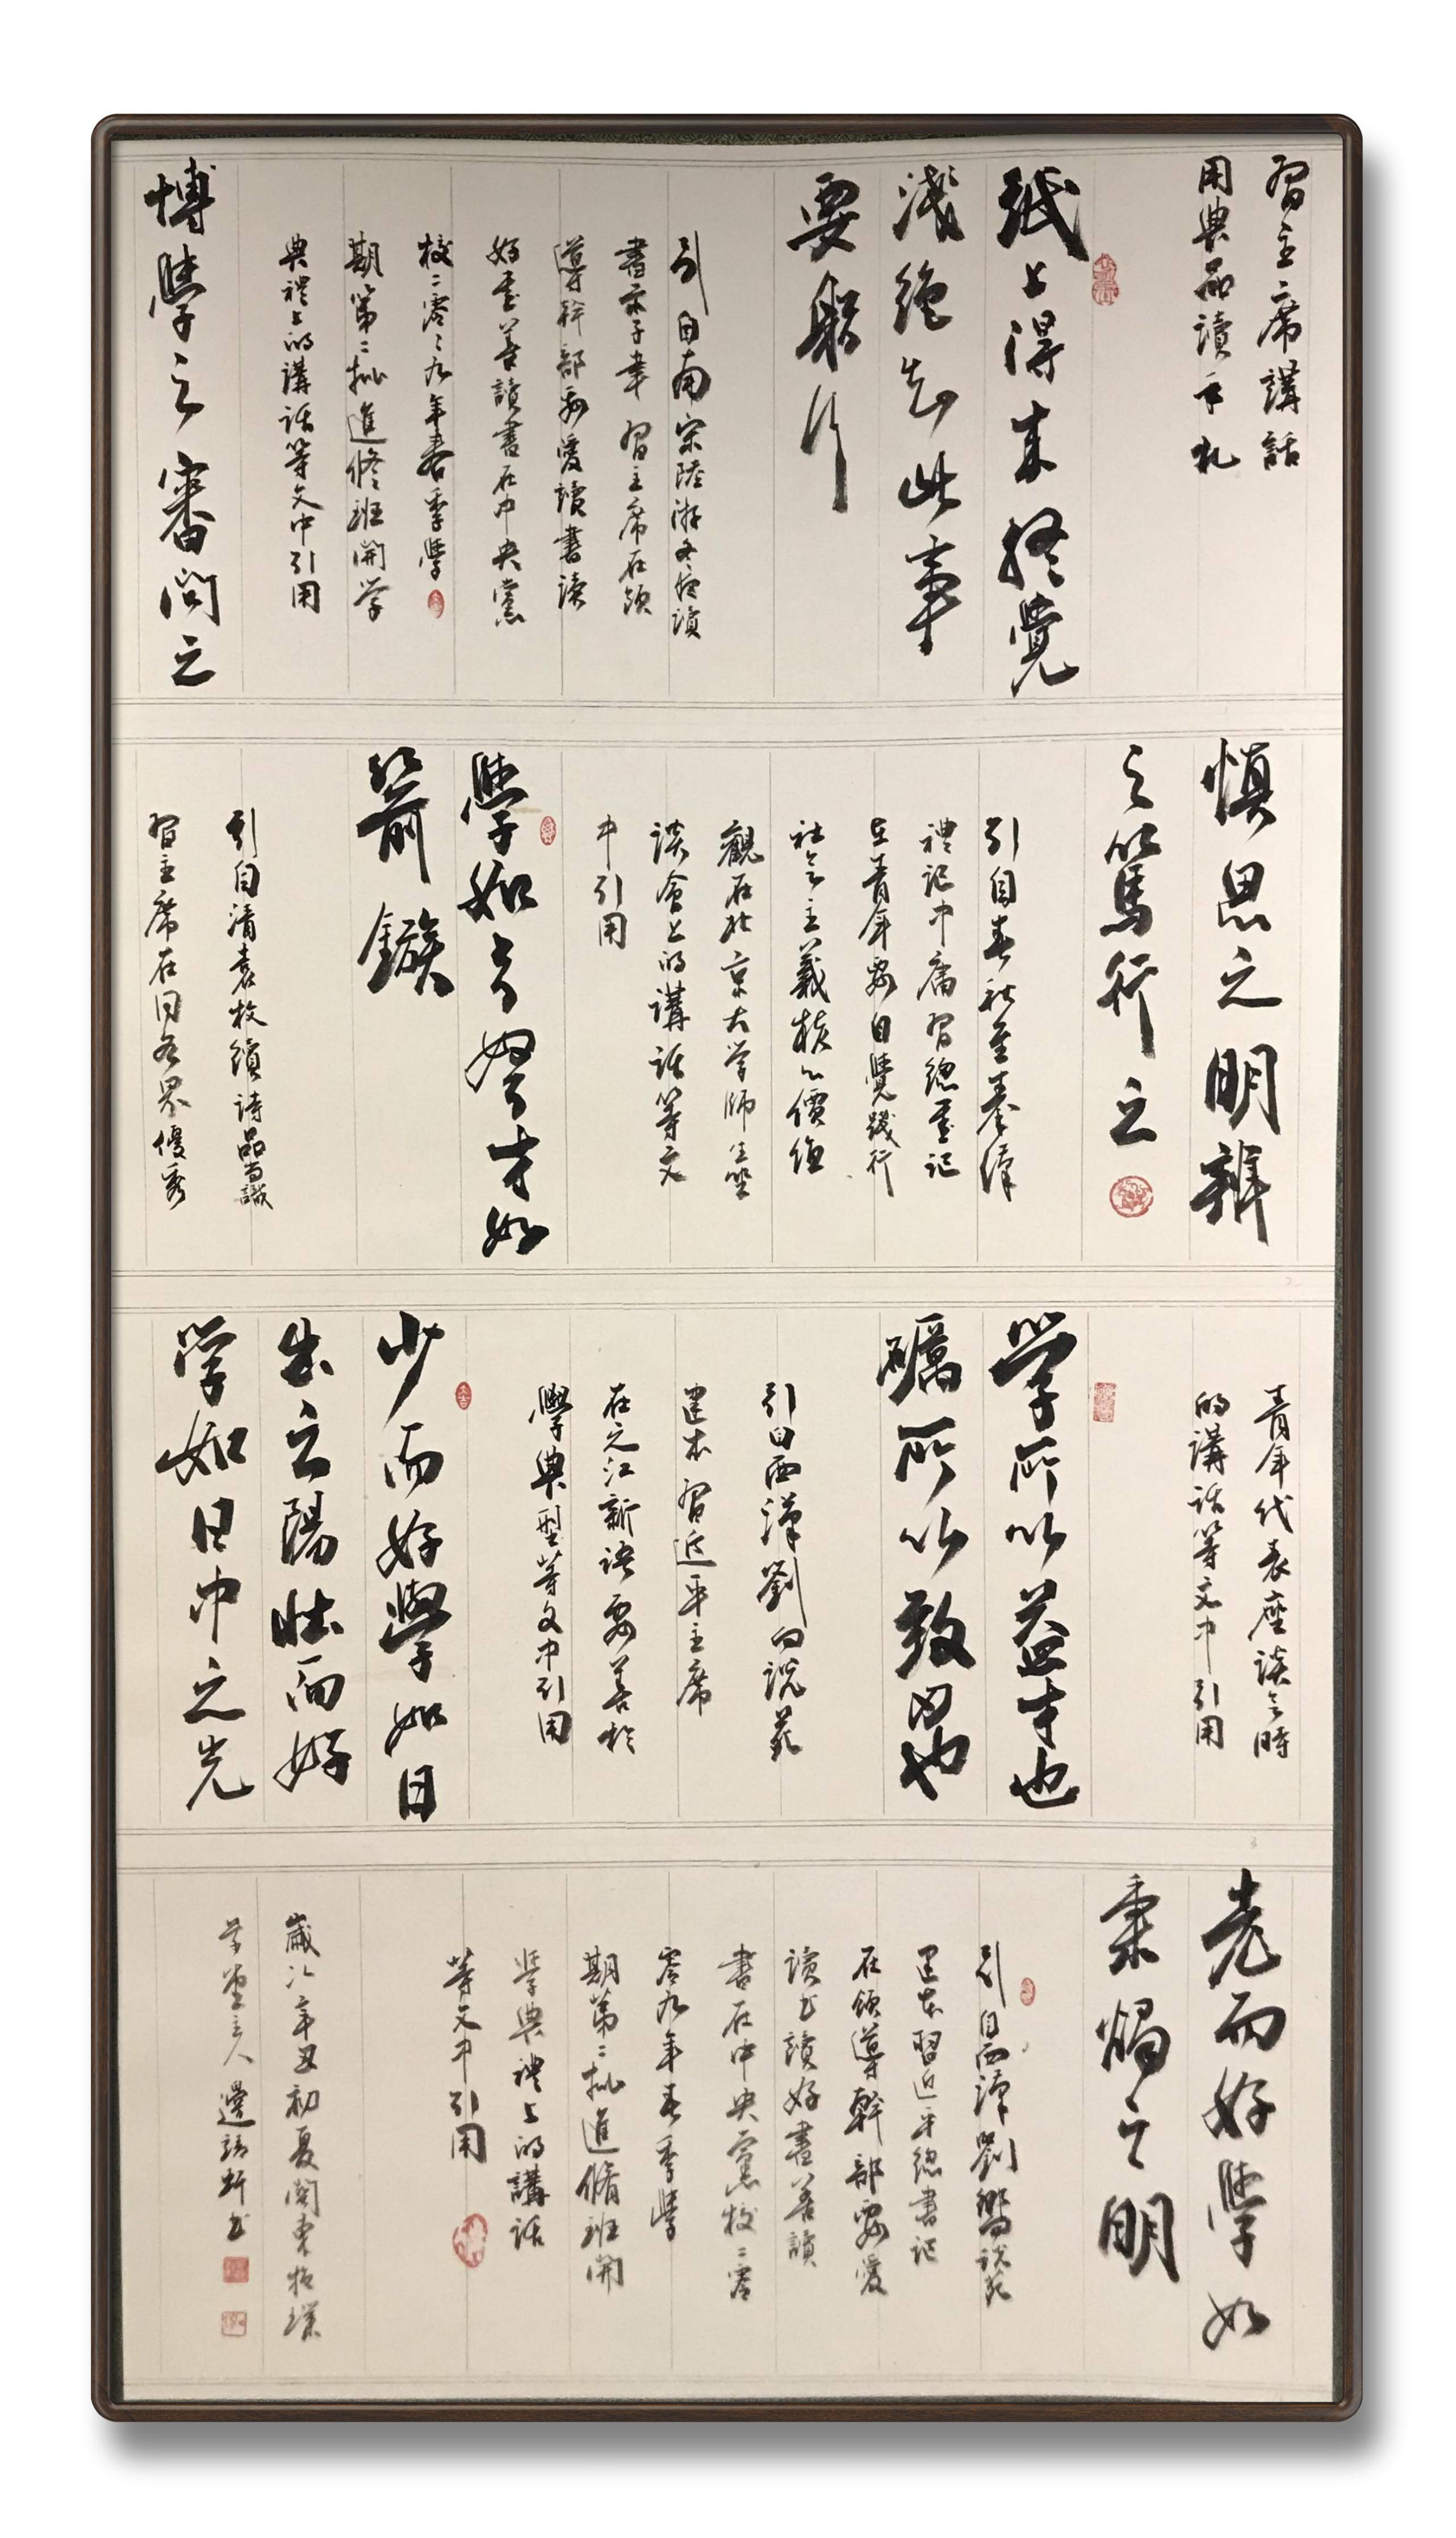 習主席講話
用典品讀手札
紙上得来終覺
淺絶知此事
要躬行
引自南宋陸游冬夜讀
書示子聿習主席在領
導幹部要愛讀書读
好書善讀書在中央黨
校二零零九年春季學
期第二批進修班開学
典禮上的講話等文中引用
博學之審問之
慎思之明辨
之篤行之
引自春秋至秦漢
禮記中庸習總書记
在青年要自覺践行
社会主義核心價值
觀在北京大学師生座
談會上的講話等文
中引用
學如弓弩才如
箭鏃
引自清袁枚續詩品尚識
習主席在同各界優秀
青年代表座談会時
的講話等文中引用
学所以益才也
礪所以致刃也
引自西漢劉向说苑
建本習近平主席
在之江新语要善於
學典型等文中引用
少而好學如日
出之陽壯而好
学如日中之光
老而好學如
秉燭之明
引自西漢劉嚮说苑
建本習近平總書记
在領導幹部要愛
讀书讀好書善讀
書在中央黨校二零
零九年春季學
期第二批進脩班開
學典禮上的講話
等文中引用
歲次辛丑初夏関東
堂主人邊